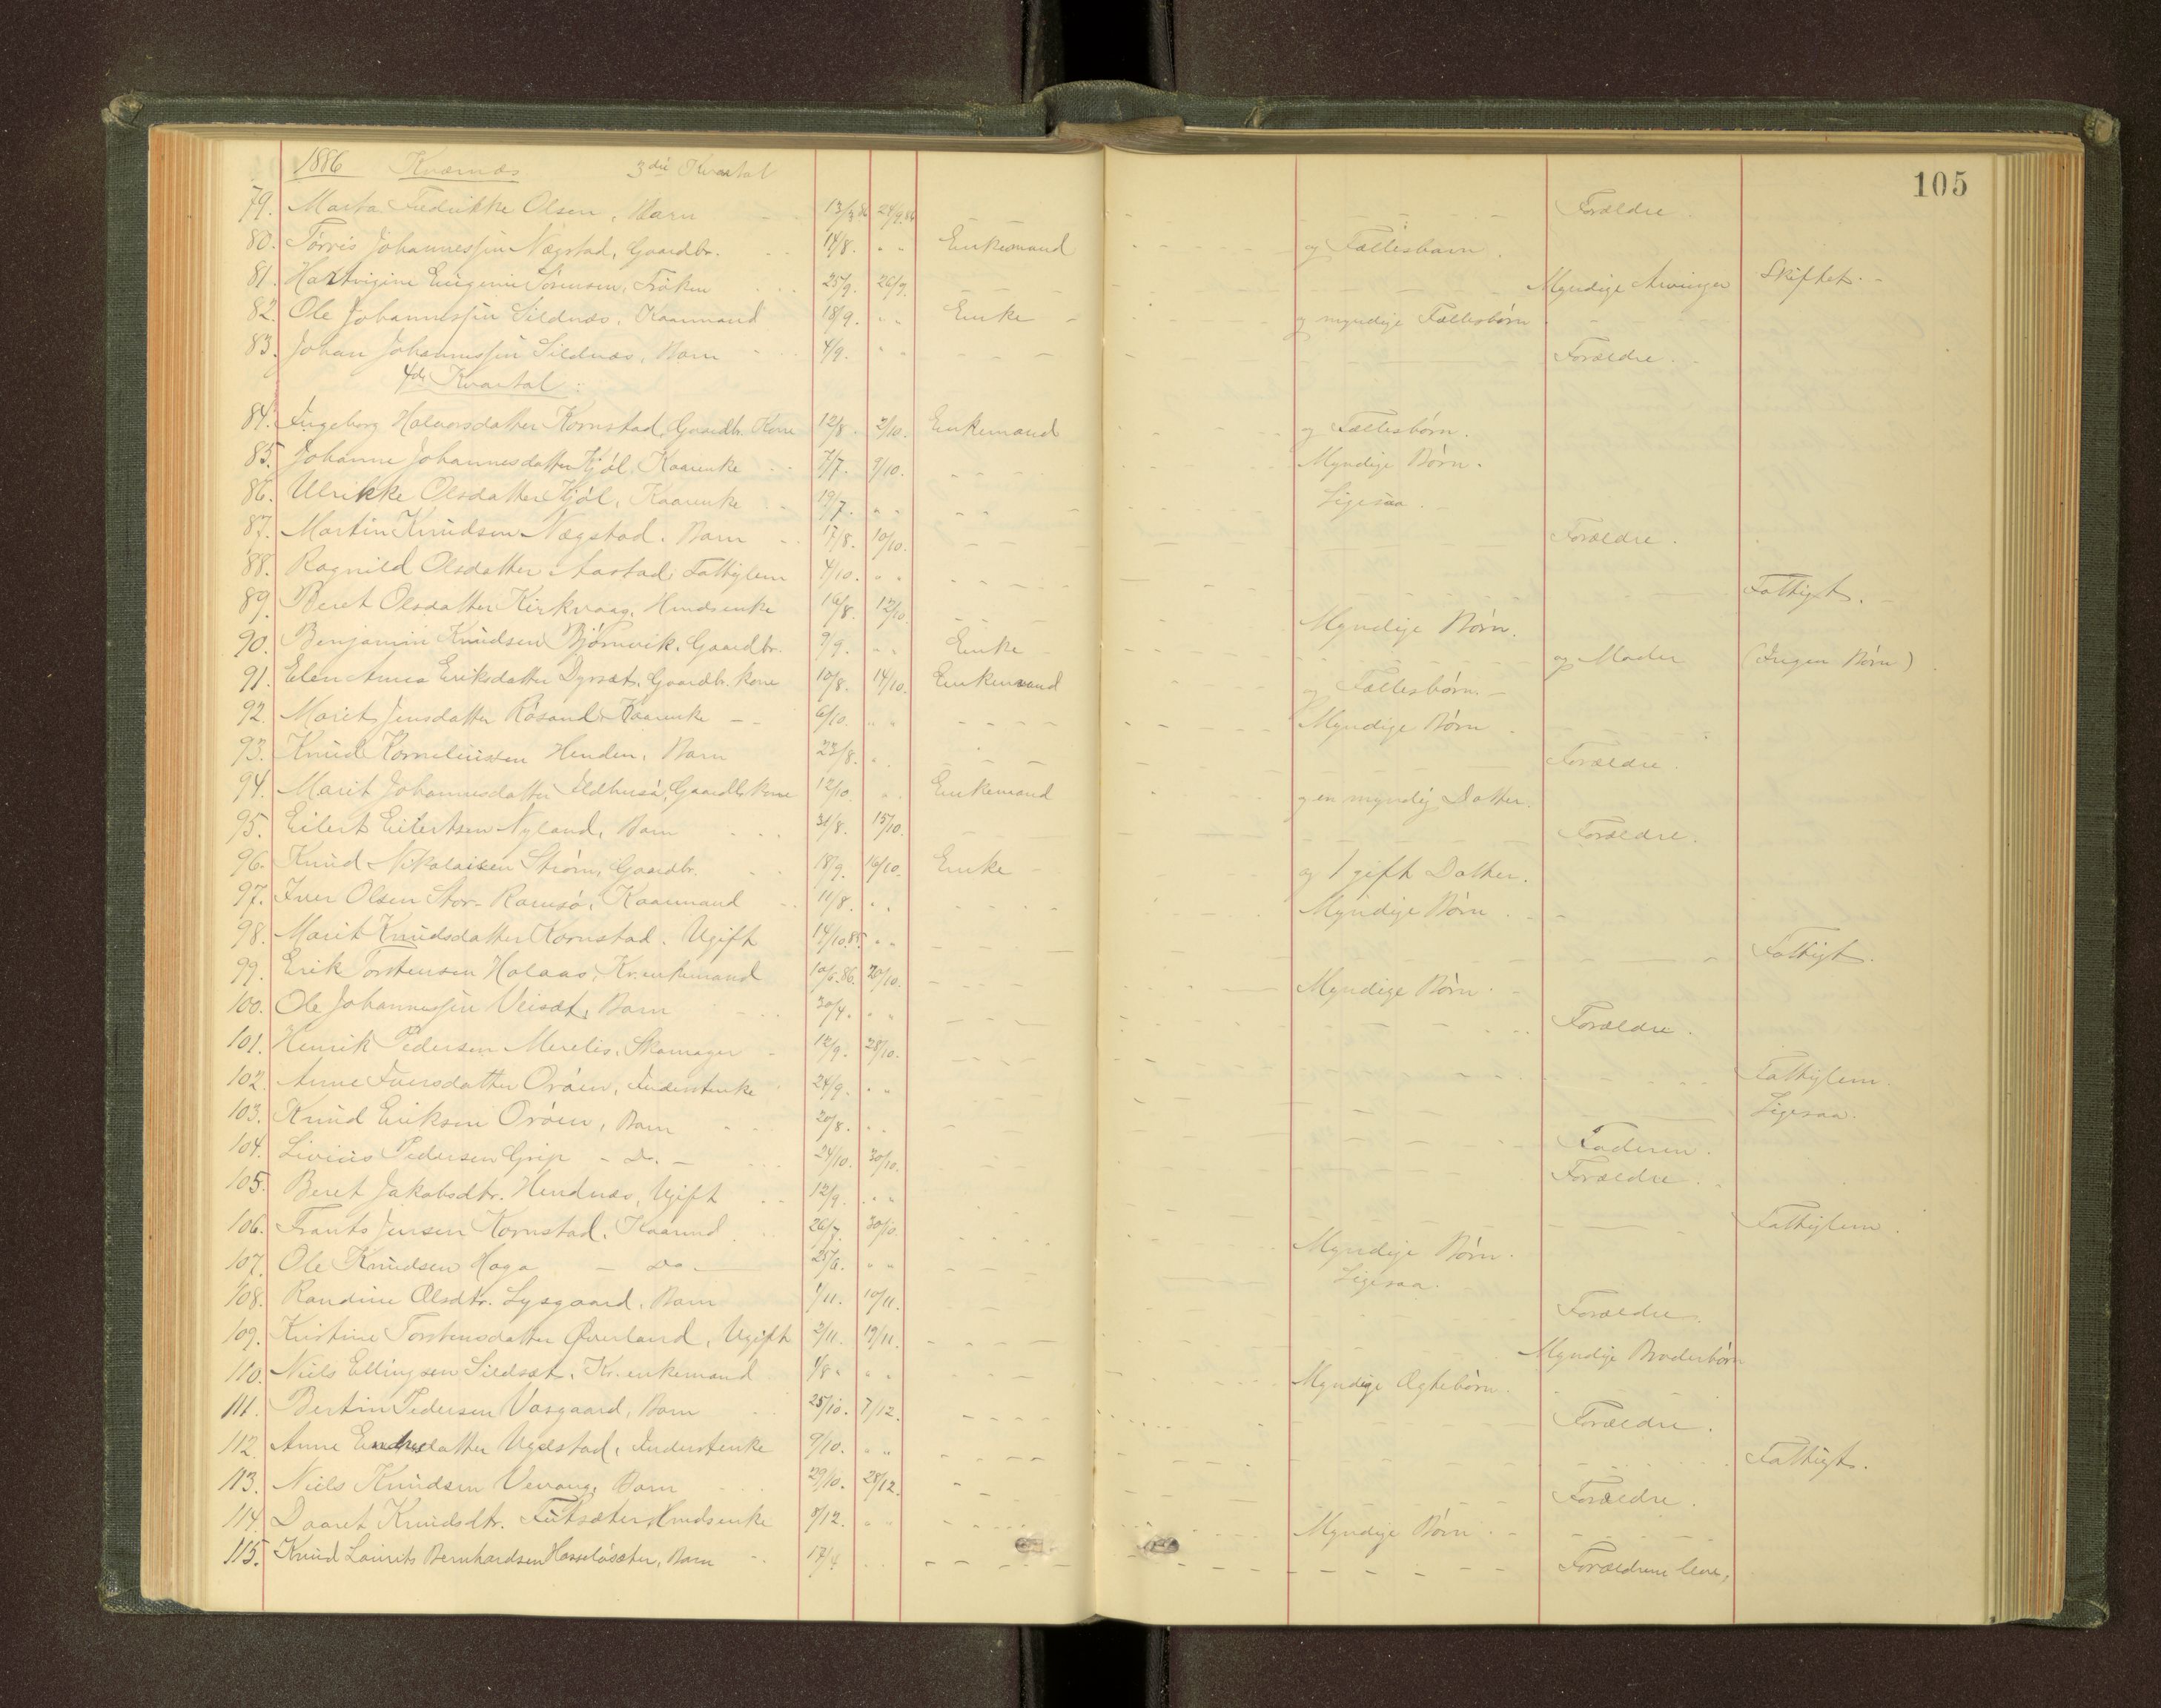 105
1886 Kværnæs 3die Kvartal
79. Marta Fredrikke Olsen, Barn 13/3 86 24/9 86 Forældre.
80. Torris Johannessen Nægstad, Gaardbr. 14/8. " " Enkemand og Fællesbarn.
81. Hartvigine Eugenie Sørensen, Frøken 25/9. 26/9. Myndige Arvinger Skiftet.
82. Ole Johannessen Sildnæs, Kaarmand 18/9. " " Enke og myndige Fællesbørn
83. Johan Johannessen Sildnæs, Barn 4/9. " " Forældre.
4de Kvartal:
84. Ingeborg Halvorsdatter Kornstad, Gaardbr. Kone 12/8. 2/10. Enkemand og Fællesbørn.
85. Johanne Johannesdatter Kjøl, Kaarenke 7/7. 9/10. Myndige Børn.
86. Ulrikke Olsdatter Kjøl, Kaarenke 19/7. " " Ligesaa.
87. Martin Knudsen Nægstad, Barn 17/8. 10/10. Forældre.
88. Ragnild Olsdatter Aastad, Fattiglem 4/10. " " Fattigt.
89. Beret Olsdatter Kirkvaag, Hmdsenke 16/8. 12/10. Myndige Børn.
90. Benjamin Knudsen Bjørnvik, Gaardbr. 9/9. " " Enke og Moder (Ingen Børn)
91. Elen Anna Eriksdatter Dyrsæt, Gaardbr. kone 10/8. 14/10. Enkemand og Fællesbørn.
92. Marit Jensdatter Røsand, Kaarenke 6/10. " " Myndige Børn
93. Knud Korneliussen Henden, Barn 23/8. " Forældre.
94. Marit Johannesdatter Ildhusø, Gaardb. kone 12/10. " Enkemand og en myndig Datter.
95. Eilert Eilertsen Nyland, Barn 31/8. 15/10. Forældre.
96. Knud Nikolaisen Strøm, Gaardbr. 18/9. 16/10. Enke og 1 gift Datter.
97. Iver Olsen Stor-Ramsø, Kaarmand 11/8. " " Myndige Børn.
98. Marit Knudsdatter Kornstad. Ugift 14/10.85. " " Fattigt.
99. Erik Torstensen Holaas, Kr. enkemand 10/6.86. 20/10. Myndige Børn.
100. Ole Johannessen Veisæt, Barn 30/4. " " Forældre.
101. Henrik Pedersen Merelis, Skomager 12/9. 28/10. Fattiglem.
102. Anne Iversdatter Orøen, Inderstenke 24/9. " " Ligesaa.
103. Knud Eriksen Orøen, Barn 20/8. " " Faderen.
104. Livius Pedersen Grip - Do. - 24/10. 30/10. Forældre.
105. Beret Jakobsdtr. Hendnæs, Ugift 12/9. " " Fattiglem.
106. Frants Jensen Kornstad, Kaarmd. 26/7. 30/10. Myndige Børn.
107. Ole Knudsen Haga - Do - 25/6. " " Ligesaa.
108. Randine Olsdtr. Lysgaard, Barn 1/11. 10/11. Forældre.
109. Kristine Torstensdatter Øverland, Ugift 2/11. 19/11. Myndige Broderbørn
110. Niels Ellingsen Sildsæt, Kr. enkemand 1/8. " " Myndige Ægtebørn.
111. Bertin Pedersen Vasgaard, Barn 25/10. 7/12. Forældre.
112. Anne Endresdatter Ugelstad, Inderstenke 9/10. " " Fattigt.
113. Niels Knudsen Vevang, Barn 29/10. 28/12. Forældre.
114. Daaret Knudsdtr. Futsæter, Hmdsenke 8/12. " " Myndige Børn.
115. Knud Laurits Bernhardsen Hasseløsæter, Barn 17/4 Forældrene leve.